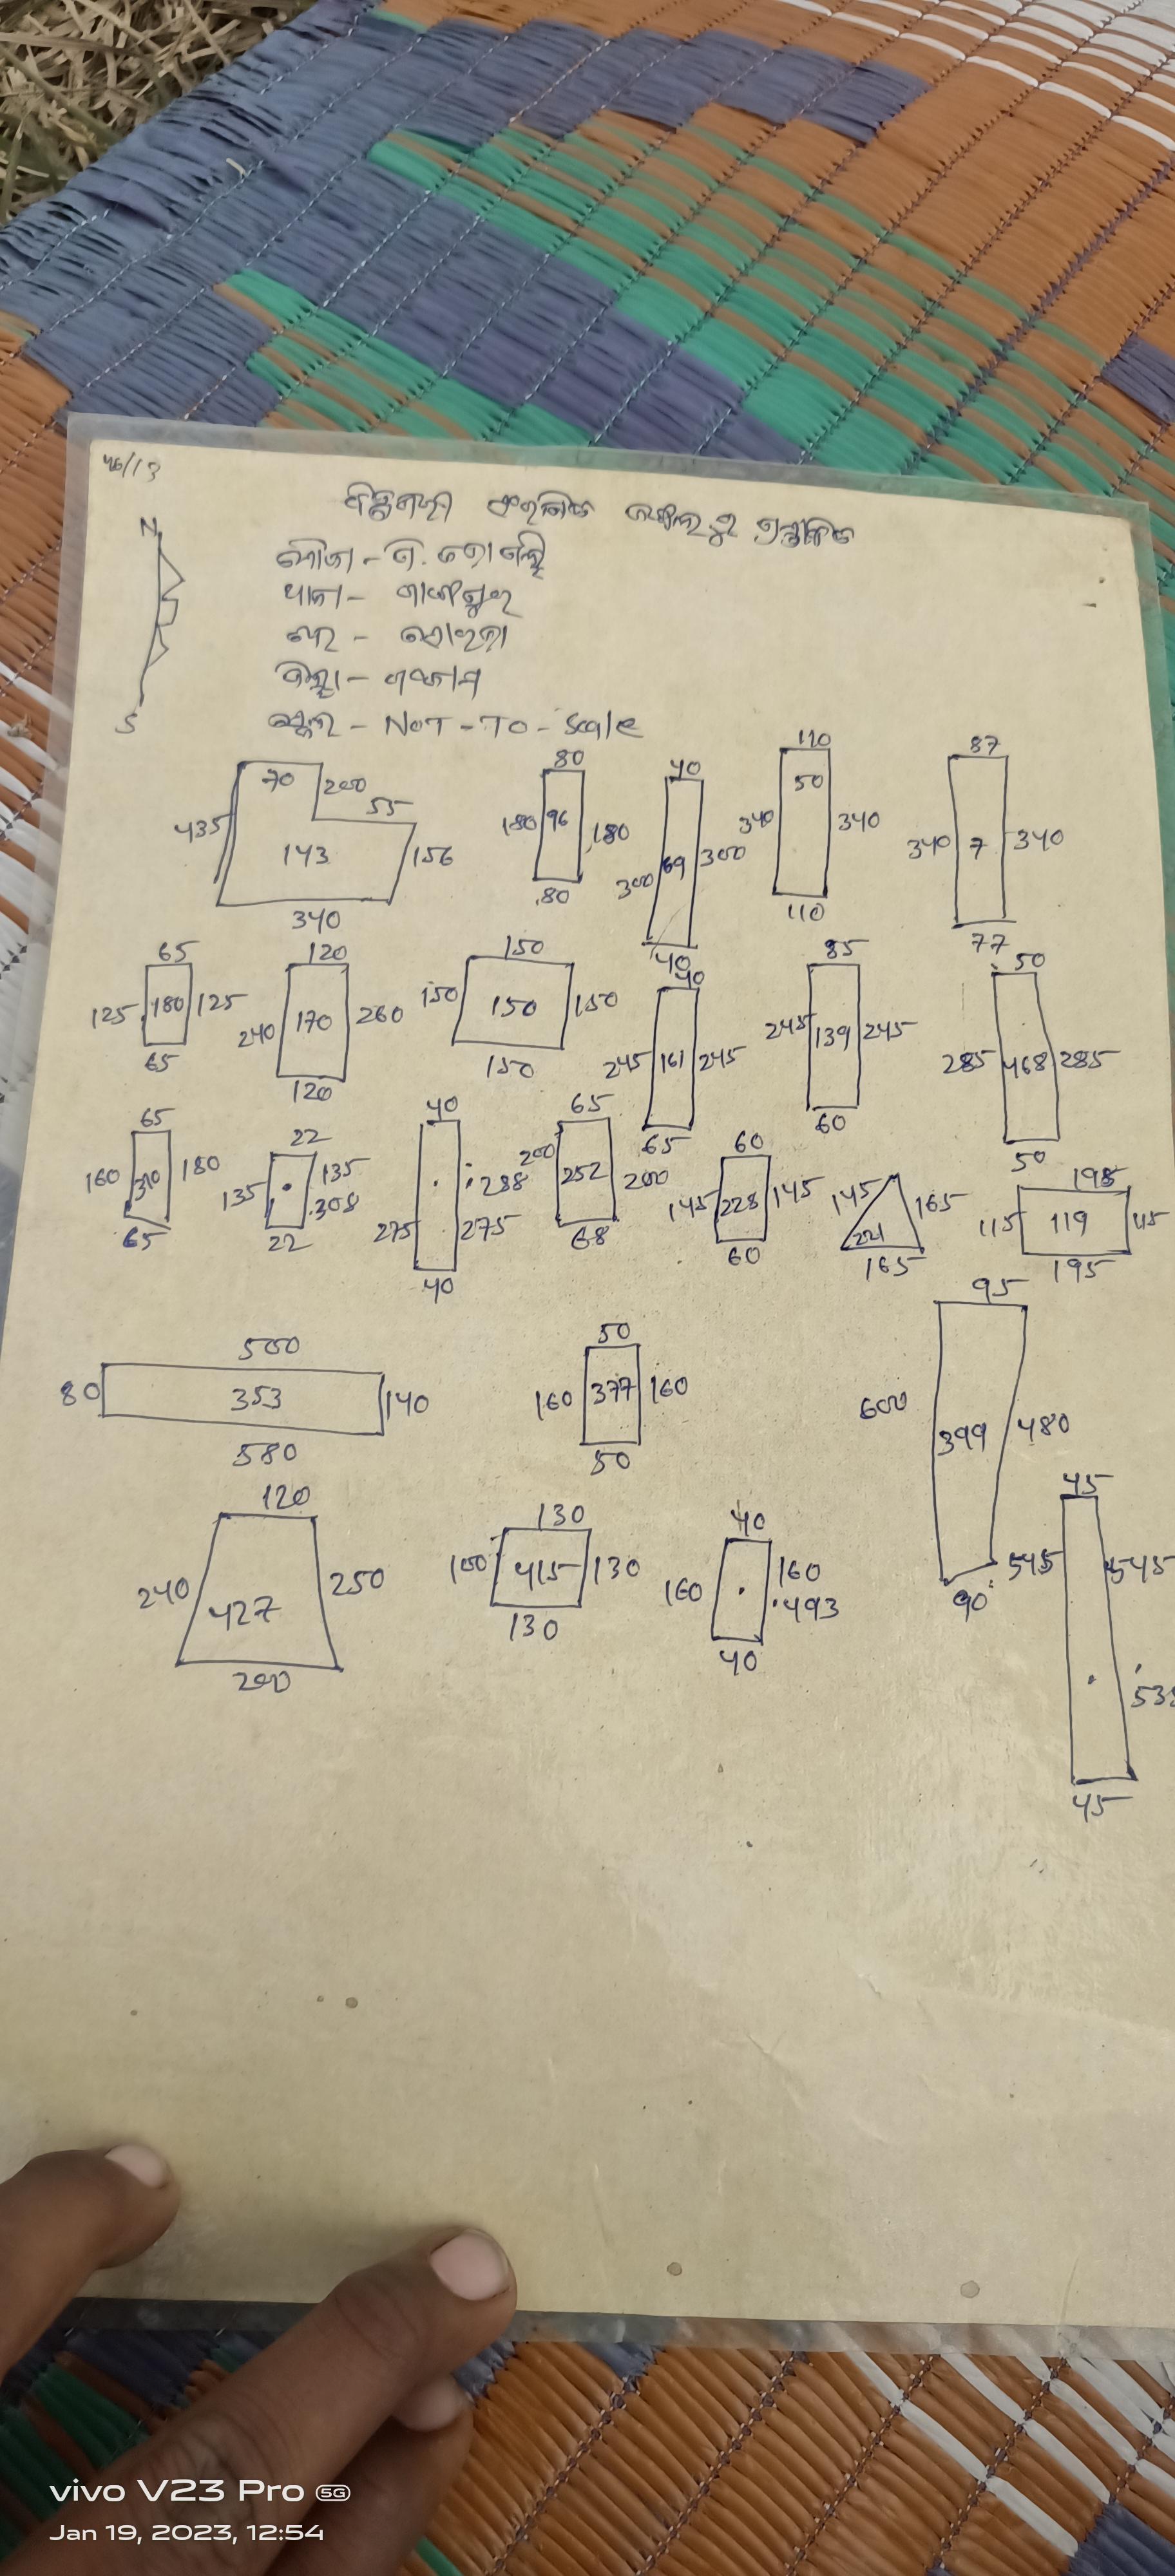 46/13
N
S
ମୌଜା -
ଥାନା -
ଜିଲ୍ଲା - ଗଞ୍ଜାମ
ସ୍କେଲ - NOT - TO - Scale
70 200 55 435 143 156 340
80 180 96 180 80
40 300 69 300 40
110 50 340 340 110
87 340 7 340 77
65 125 180 125 65
120 240 170 260 120
150 150 150 150 150
40 245 161 245 65
85 245 139 245 60
50 285 468 285 50
65 160 310 180 65
22 135 135 308 22
40 288 275 275 40
65 200 252 200 68
60 145 228 145 60
145 165 221 165
195 115 119 115 195
500 80 353 140 580
50 160 377 160 50
95 600 399 480 90
120 240 427 250 200
130 100 415 130 130
40 160 160 493 40
45 545 545 45
vivo V23 Pro 5G
Jan 19, 2023, 12:54